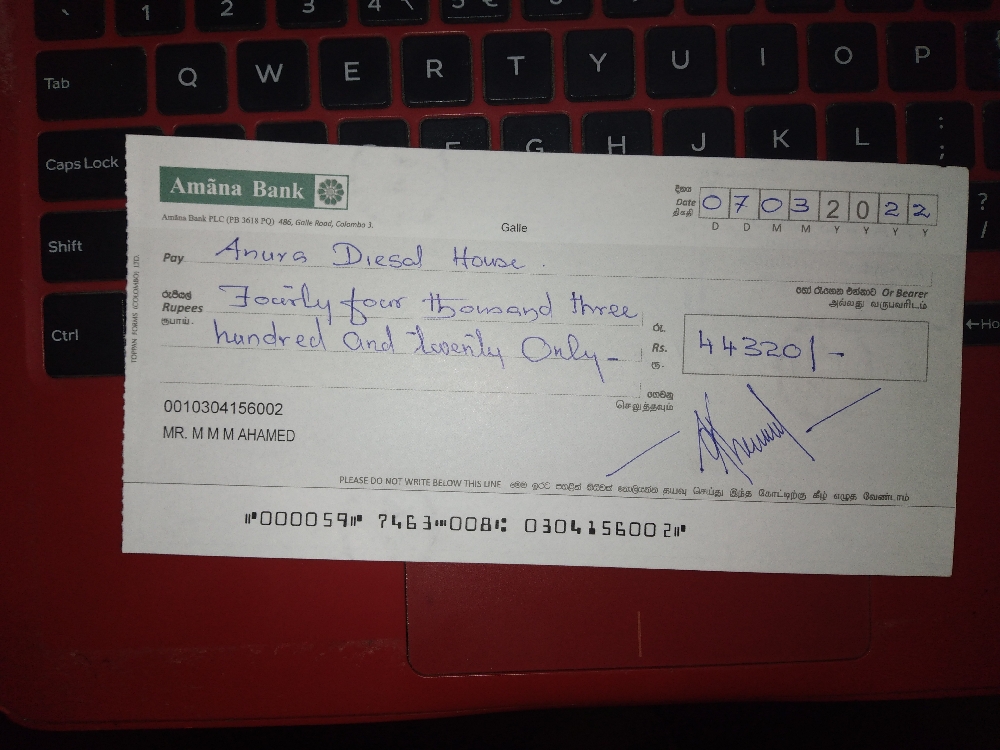 ` 1 2 3 4
Tab Q W E R T Y U I O P
Caps Lock G H J K L : ;
Shift ? /
Ctrl
Amãna Bank
Amãna Bank PLC (PB 3618 PQ) 486, Galle Road, Colombo 3.
Galle
දිනය
Date 0 7 0 3 2 0 2 2
திகதி D D M M Y Y Y Y
Pay Anura Diesal House
හෝ රැගෙන එන්නාට Or Bearer
அல்லது வருபவரிடம்
රුපියල්
Rupees Fourly four thousand three
ரூபாய் hundred and twenty Only -
රු.
Rs. 44320/-
ரூ.
ගෙවනු
செலுத்தவும்
0010304156002
MR. M M M AHAMED
TOPPAN FORMS (COLOMBO) LTD.
PLEASE DO NOT WRITE BELOW THIS LINE தயவு செய்து இந்த கோட்டிற்கு கீழ் எழுத வேண்டாம்
⑈000059⑈ 7463⑉008⑆ 0304156002⑈